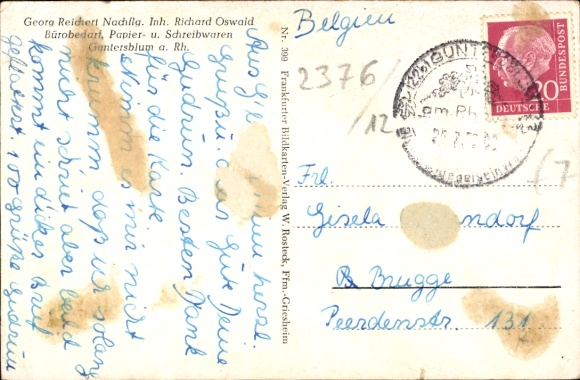 Georg Reichert Nachflg. Inh. Richard Oswald
Bürobedarf, Papier- u. Schreibwaren
Guntersblum a. Rh.
Aus G'bl
Grüße u. alles Gute Deine
Gudrun. Besten Dank
für die Karte
Nimm es mir nicht
krumm daß ich solang
nicht schrieb aber bald
kommt ein dicker Brief
100 grüße Gudrun
Nr. 399 Frankfurter Bildkarten-Verlag W. Rosteck, Ffm.-Griesheim
Belgien
2376
/12
(22b) GUNTERSBLUM
am Rh.
DEUTSCHE
BUNDESPOST
20
(7
Frl.
Gisela ndorf
B. Brugge
Peerdenstr. 131